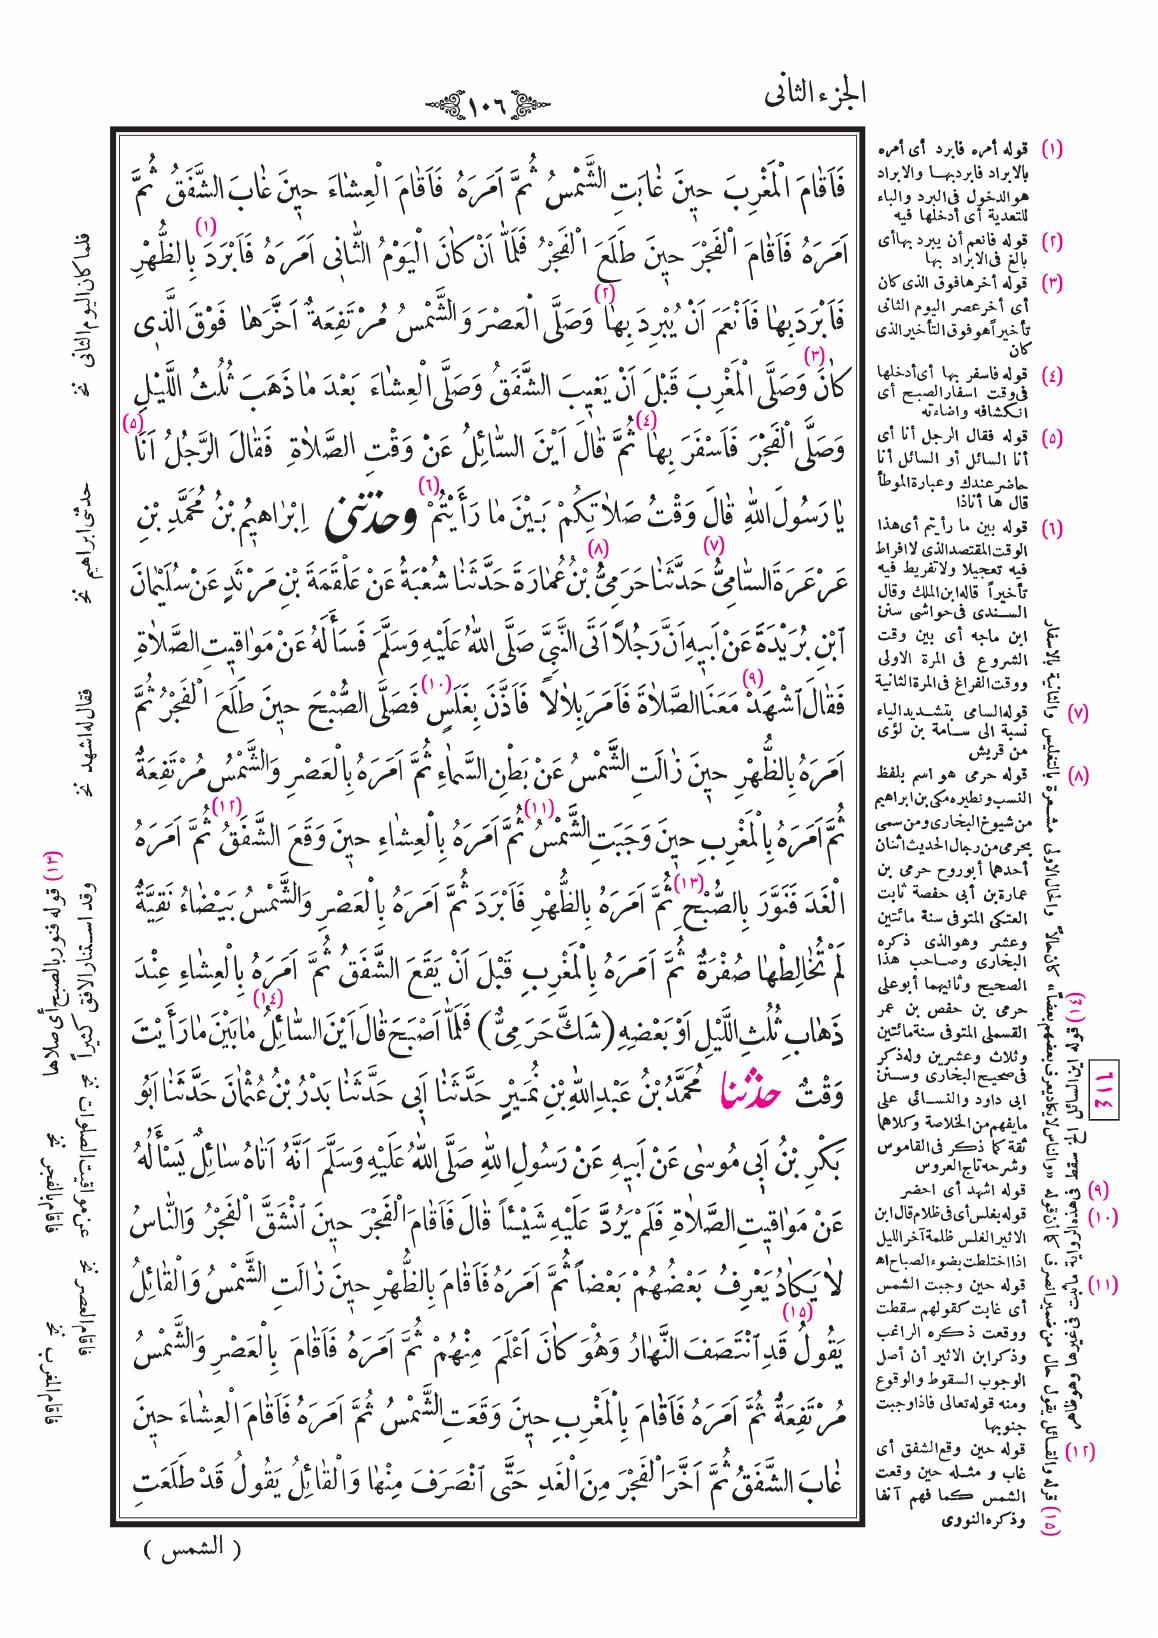 الجزء الثانى
١٠٦
فَاَقَامَ الْمَغْرِبَ حِينَ غَابَتِ الشَّمْسُ ثُمَّ اَمَرَهُ فَاَقَامَ الْعِشَاءَ حِينَ غَابَ الشَّفَقُ ثُمَّ
اَمَرَهُ فَاَقَامَ الْفَجْرَ حِينَ طَلَعَ الْفَجْرُ فَلَمَّا اَنْ كَانَ الْيَوْمُ الثَّانِى اَمَرَهُ فَاَبْرَدَ (١) بِالظُّهْرِ
فَاَبْرَدَ بِهَا فَاَنْعَمَ اَنْ يُبْرِدَ بِهَا (٢) وَصَلَّى الْعَصْرَ وَالشَّمْسُ مُرْتَفِعَةٌ اَخَّرَهَا فَوْقَ الَّذِى
كَانَ (٣) وَصَلَّى الْمَغْرِبَ قَبْلَ اَنْ يَغِيبَ الشَّفَقُ وَصَلَّى الْعِشَاءَ بَعْدَ مَا ذَهَبَ ثُلُثُ اللَّيْلِ
وَصَلَّى الْفَجْرَ فَاَسْفَرَ بِهَا (٤) ثُمَّ قَالَ اَيْنَ السَّائِلُ عَنْ وَقْتِ الصَّلَاةِ فَقَالَ الرَّجُلُ اَنَا (٥)
يَا رَسُولَ اللهِ قَالَ وَقْتُ صَلَاتِكُمْ بَيْنَ مَا رَأَيْتُمْ (٦) وحدثنى اِبْرَاهِيمُ بْنُ مُحَمَّدِ بْنِ
عَرْعَرَةَ السَّامِىُّ (٧) حَدَّثَنَا حَرَمِىُّ (٨) بْنُ عُمَارَةَ حَدَّثَنَا شُعْبَةُ عَنْ عَلْقَمَةَ بْنِ مَرْثَدٍ عَنْ سُلَيْمَانَ
ابْنِ بُرَيْدَةَ عَنْ اَبِيهِ اَنَّ رَجُلًا اَتَى النَّبِىَّ صَلَّى اللهُ عَلَيْهِ وَسَلَّمَ فَسَأَلَهُ عَنْ مَوَاقِيتِ الصَّلَاةِ
فَقَالَ اشْهَدْ (٩) مَعَنَا الصَّلَاةَ فَاَمَرَ بِلَالًا فَاَذَّنَ بِغَلَسٍ (١٠) فَصَلَّى الصُّبْحَ حِينَ طَلَعَ الْفَجْرُ ثُمَّ
اَمَرَهُ بِالظُّهْرِ حِينَ زَالَتِ الشَّمْسُ عَنْ بَطْنِ السَّمَاءِ ثُمَّ اَمَرَهُ بِالْعَصْرِ وَالشَّمْسُ مُرْتَفِعَةٌ
ثُمَّ اَمَرَهُ بِالْمَغْرِبِ حِينَ وَجَبَتِ الشَّمْسُ (١١) ثُمَّ اَمَرَهُ بِالْعِشَاءِ حِينَ وَقَعَ الشَّفَقُ (١٢) ثُمَّ اَمَرَهُ
الْغَدَ فَنَوَّرَ بِالصُّبْحِ (١٣) ثُمَّ اَمَرَهُ بِالظُّهْرِ فَاَبْرَدَ ثُمَّ اَمَرَهُ بِالْعَصْرِ وَالشَّمْسُ بَيْضَاءُ نَقِيَّةٌ
لَمْ تُخَالِطْهَا صُفْرَةٌ ثُمَّ اَمَرَهُ بِالْمَغْرِبِ قَبْلَ اَنْ يَقَعَ الشَّفَقُ ثُمَّ اَمَرَهُ بِالْعِشَاءِ عِنْدَ
ذَهَابِ ثُلُثِ اللَّيْلِ اَوْ بَعْضِهِ (شَكَّ حَرَمِىٌّ) فَلَمَّا اَصْبَحَ قَالَ اَيْنَ السَّائِلُ (١٤) مَا بَيْنَ مَا رَأَيْتَ
وَقْتٌ حدثنا مُحَمَّدُ بْنُ عَبْدِ اللهِ بْنِ نُمَيْرٍ حَدَّثَنَا اَبِى حَدَّثَنَا بَدْرُ بْنُ عُثْمَانَ حَدَّثَنَا اَبُو
بَكْرِ بْنُ اَبِى مُوسٰى عَنْ اَبِيهِ عَنْ رَسُولِ اللهِ صَلَّى اللهُ عَلَيْهِ وَسَلَّمَ اَنَّهُ اَتَاهُ سَائِلٌ يَسْأَلُهُ
عَنْ مَوَاقِيتِ الصَّلَاةِ فَلَمْ يَرُدَّ عَلَيْهِ شَيْئًا قَالَ فَاَقَامَ الْفَجْرَ حِينَ انْشَقَّ الْفَجْرُ وَالنَّاسُ
لَا يَكَادُ يَعْرِفُ بَعْضُهُمْ بَعْضًا ثُمَّ اَمَرَهُ فَاَقَامَ بِالظُّهْرِ حِينَ زَالَتِ الشَّمْسُ وَالْقَائِلُ
يَقُولُ (١٥) قَدِ انْتَصَفَ النَّهَارُ وَهُوَ كَانَ اَعْلَمَ مِنْهُمْ ثُمَّ اَمَرَهُ فَاَقَامَ بِالْعَصْرِ وَالشَّمْسُ
مُرْتَفِعَةٌ ثُمَّ اَمَرَهُ فَاَقَامَ بِالْمَغْرِبِ حِينَ وَقَعَتِ الشَّمْسُ ثُمَّ اَمَرَهُ فَاَقَامَ الْعِشَاءَ حِينَ
غَابَ الشَّفَقُ ثُمَّ اَخَّرَ الْفَجْرَ مِنَ الْغَدِ حَتَّى انْصَرَفَ مِنْهَا وَالْقَائِلُ يَقُولُ قَدْ طَلَعَتِ
( الشمس )
(١) قوله أمره فابرد أى أمره
بالابراد فابرد بها والابراد
هو الدخول فى البرد والباء
للتعدية أى أدخلها فيه
(٢) قوله فانعم أن يبرد بها أى
بالغ فى الابراد بها
(٣) قوله أخرها فوق الذى كان
أى أخر عصر اليوم الثانى
تأخيراً هو فوق التأخير الذى
كان
(٤) قوله فاسفر بها أى أدخلها
فى وقت اسفار الصبح أى
انكشافه واضاءته
(٥) قوله فقال الرجل أنا أى
أنا السائل أو السائل أنا
حاضر عندك وعبارة الموطأ
قال ها أناذا
(٦) قوله بين ما رأيتم أى هذا
الوقت المقتصد الذى لا افراط
فيه تعجيلا ولا تفريط فيه
تأخيراً قاله ابن الملك وقال
السندى فى حواشى سنن
ابن ماجه أى بين وقت
الشروع فى المرة الاولى
ووقت الفراغ فى المرة الثانية
(٧) قوله السامى بتشديد الياء
نسبة الى سامة بن لؤى
من قريش
(٨) قوله حرمى هو اسم بلفظ
النسب ونظيره مكى بن ابراهيم
من شيوخ البخارى ومن سمى
بحرمى من رجال الحديث اثنان
أحدهما أبو روح حرمى بن
عمارة بن أبى حفصة ثابت
العتكى المتوفى سنة مائتين
وعشر وهو الذى ذكره
البخارى وصاحب هذا
الصحيح وثانيهما أبو على
حرمى بن حفص بن عمر
القسملى المتوفى سنة مائتين
وثلاث وعشرين وله ذكر
فى صحيح البخارى وسنن
ابى داود والنسائى على
ما يفهم من الخلاصة وكلاهما
ثقة كما ذكر فى القاموس
وشرحه تاج العروس
(٩) قوله اشهد أى احضر
(١٠) قوله بغلس أى فى ظلام قال ابن
الاثير الغلس ظلمة آخر الليل
اذا اختلطت بضوء الصباح اه
(١١) قوله حين وجبت الشمس
أى غابت كقولهم سقطت
ووقعت ذكره الراغب
وذكر ابن الاثير أن أصل
الوجوب السقوط والوقوع
ومنه قوله تعالى فاذا وجبت
جنوبها
(١٢) قوله حين وقع الشفق أى
غاب ومثله حين وقعت
الشمس كما فهم آنفا
وذكره النووى
(١٣) قوله فنور بالصبح أى صلاها
وقد استنار الافق كثيراً
(١٤) قوله اين السائل الخ سقط فى هذه الرواية ما يثبت فى غيرها وهو ظاهر
(١٥) قوله والقائل يقول حال من ضمير انصرف كما أن قوله «والناس لا يكاد يعرف بعضهم بعضاً» كان حالاً والحال الاولى مشعرة بالتغليس والثانية بالاسفار
٦١٤
فلما كان اليوم الثانى نخ
حدثنى ابراهيم نخ
فقال له اشهد نخ
عن مواقيت الصلوات نخ
فاقام بالفجر نخ
فاقام العصر نخ
فاقام المغرب نخ